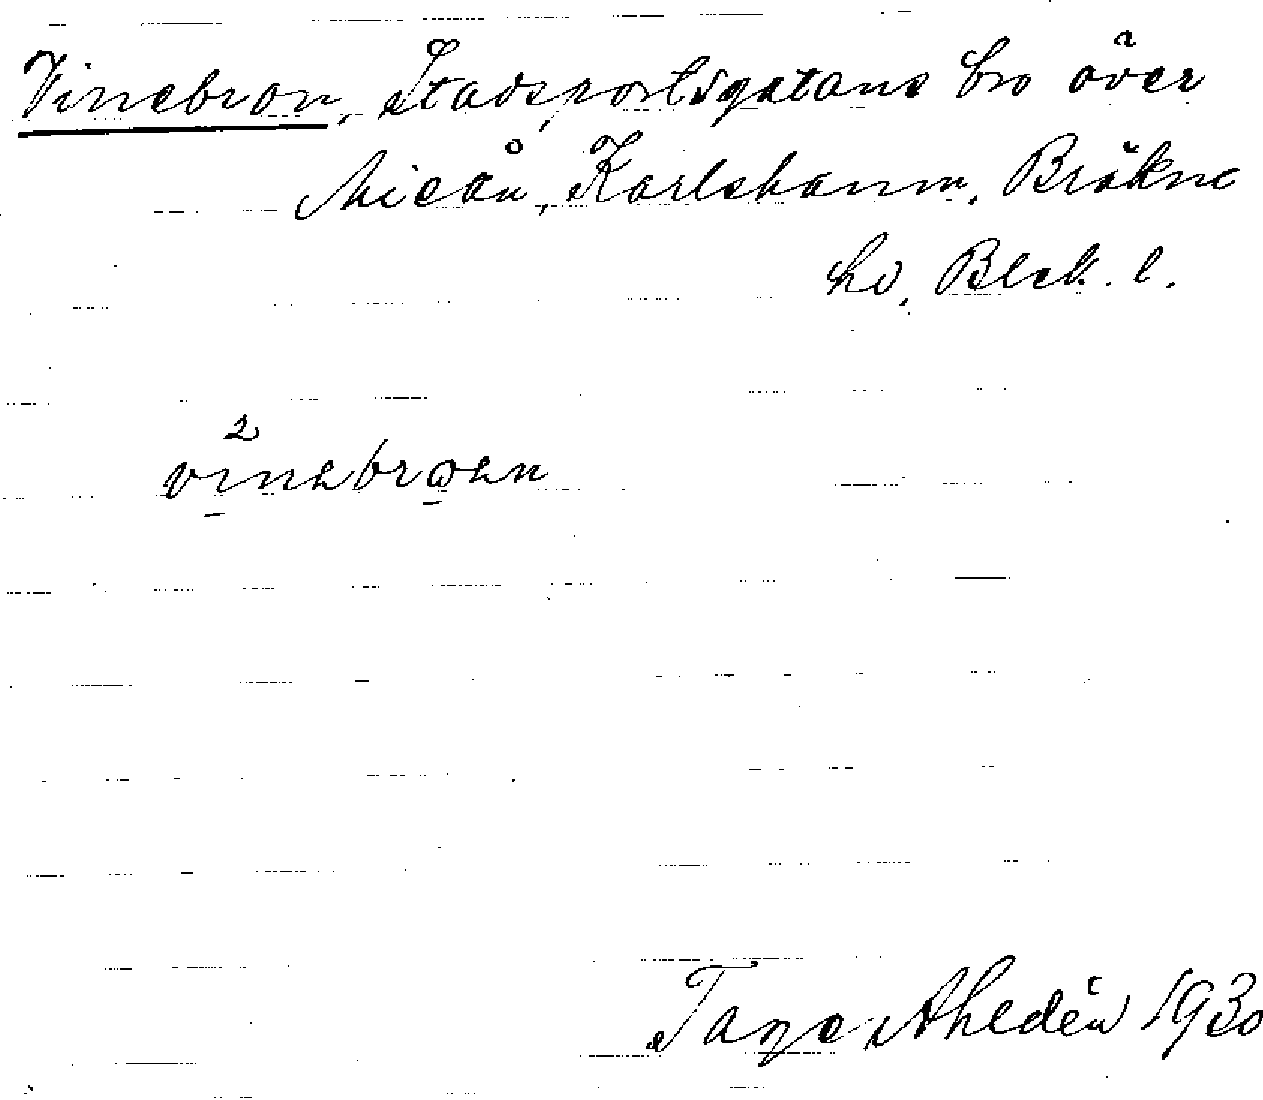 Vinebron, Stadsportsgatans bro över
Mieån, Karlshamn, Bräkne
hd, Blek. l.
2
vinəbrωən
Tage Ahldén 1930